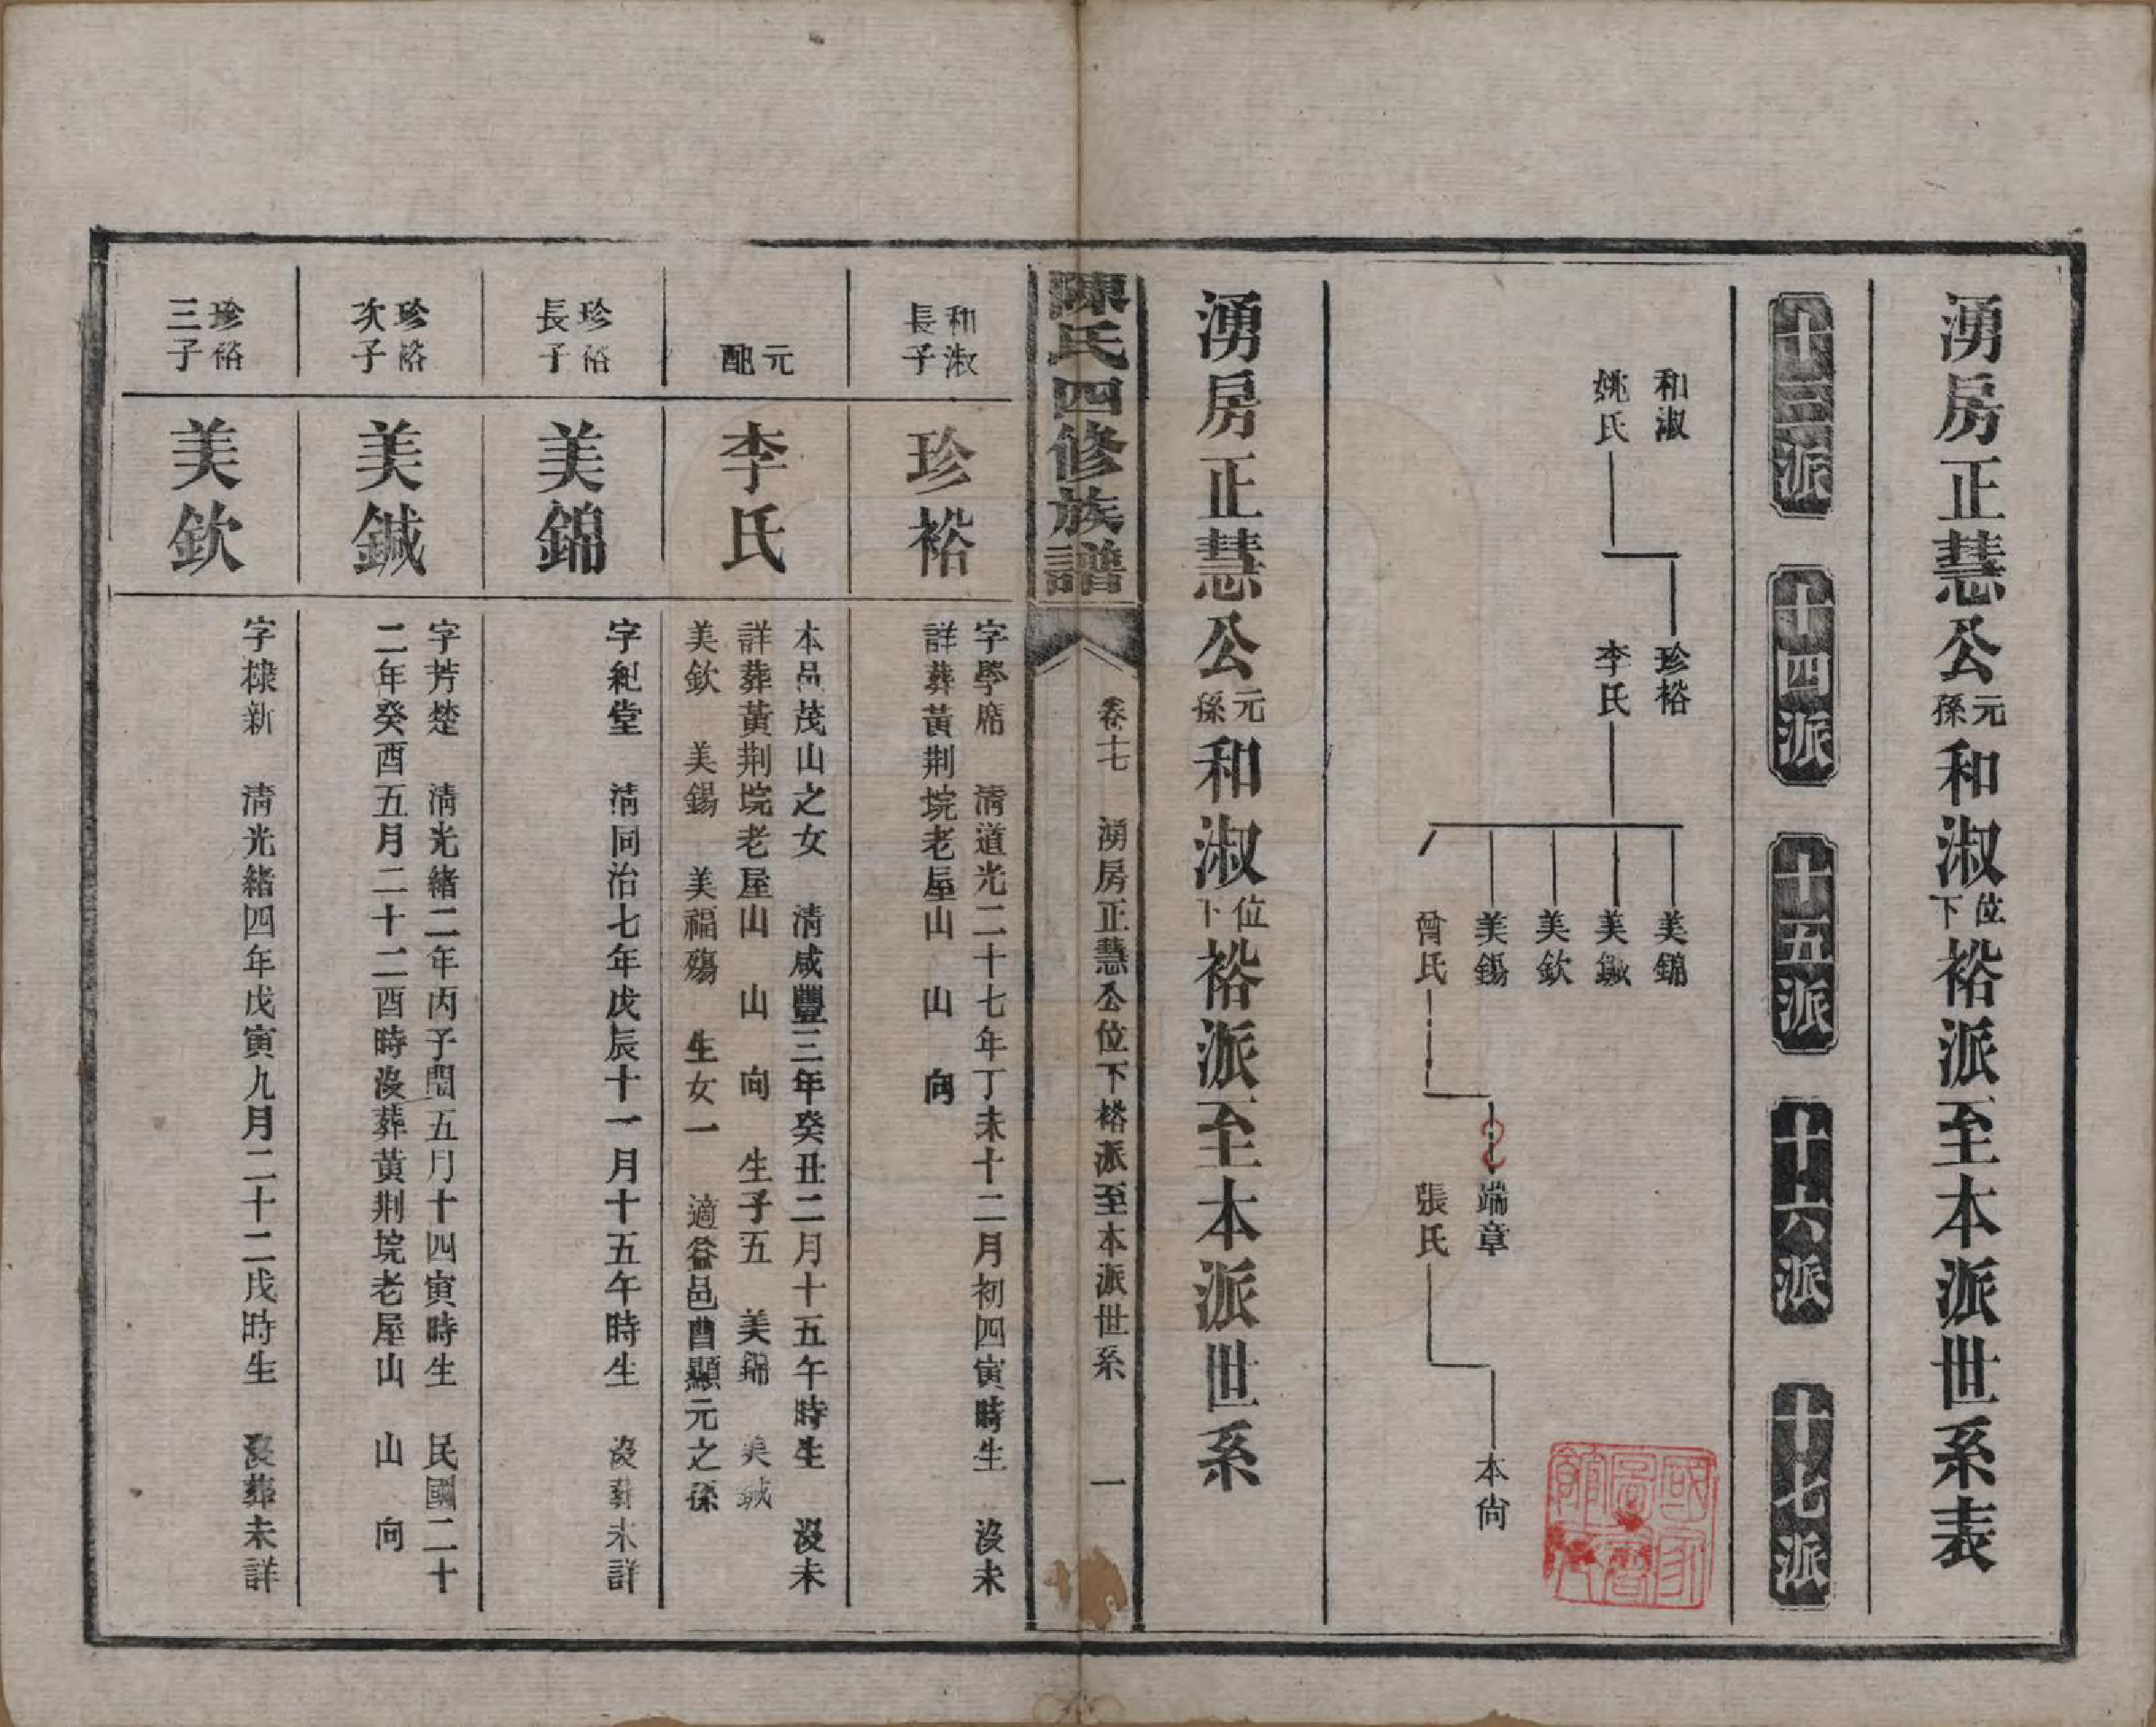 湧房正慧公元孫和淑位下裕派至本派世系表
十三派
十四派
十五派
十六派
十七派
和淑
姚氏
珍裕
李氏
美錦
美鍼
美欽
美錫
曾氏
端章
張氏
本尙
國家圖書館藏
湧房正慧公元孫和淑位下裕派至本派世系
陳氏四修族譜
卷十七
湧房正慧公位下裕派至本派世系
一
和淑長子
珍裕
字學席 淸道光二十七年丁未十二月初四寅時生 沒未
詳葬黃荆垸老屋山 山 向
元配
李氏
本邑茂山之女 淸咸豐三年癸丑二月十五午時生 沒未
詳葬黃荆垸老屋山 山 向 生子五 美錦 美鍼
美欽 美錫 美福殤 生女一 適益邑曹顯元之孫
珍裕長子
美錦
字紀堂 淸同治七年戊辰十一月十五午時生 沒葬未詳
珍裕次子
美鍼
字芳楚 淸光緖二年丙子閏五月十四寅時生 民國二十
二年癸酉五月二十二酉時沒葬黃荆垸老屋山 山 向
珍裕三子
美欽
字棣新 淸光緖四年戊寅九月二十二戌時生 沒葬未詳